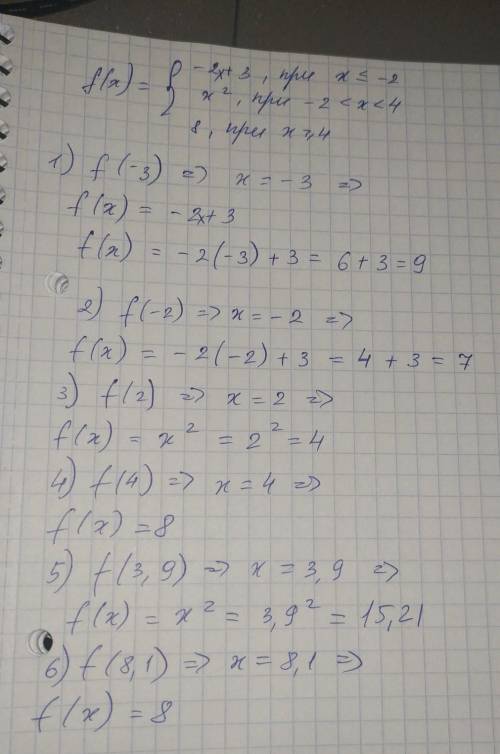 f(x) = { -2x+3, при x ≤ -2
x², при -2 < x < 4
8, при x ≥ 4
1) f(-3) => x = -3 =>
f(x) = -2x+3
f(x) = -2(-3)+3 = 6+3=9
2) f(-2) => x = -2 =>
f(x) = -2(-2)+3 = 4+3=7
3) f(2) => x = 2 =>
f(x) = x² = 2² = 4
4) f(4) => x = 4 =>
f(x) = 8
5) f(3,9) => x = 3,9 =>
f(x) = x² = 3,9² = 15,21
6) f(8,1) => x = 8,1 =>
f(x) = 8